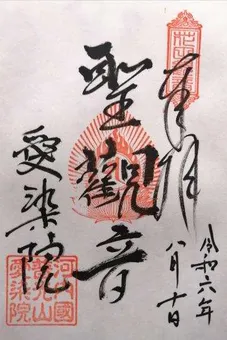 奉拝
令和六年
八月十日
聖観音
愛染院
河内國
愛染院